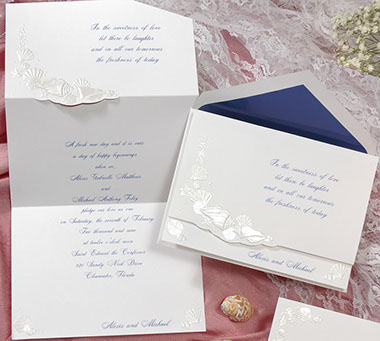 In the sweetness of love
let there be laughter
and in all our tomorrows
the freshness of today
A fresh new day and it is ours
a day of happy beginnings
when we,
Alexis Gabrielle Matthews
and
Michael Anthony Finley
pledge our love as one
on Saturday, the seventh of February
Two thousand and nine
at twelve o'clock noon
Saint Edward the Confessor
Sandy Nook Drive
Clearwater, Florida
Alexis and Michael
In the sweetness of love
let there be laughter
and in all our tomorrows
the freshness of today
Alexis and Michael